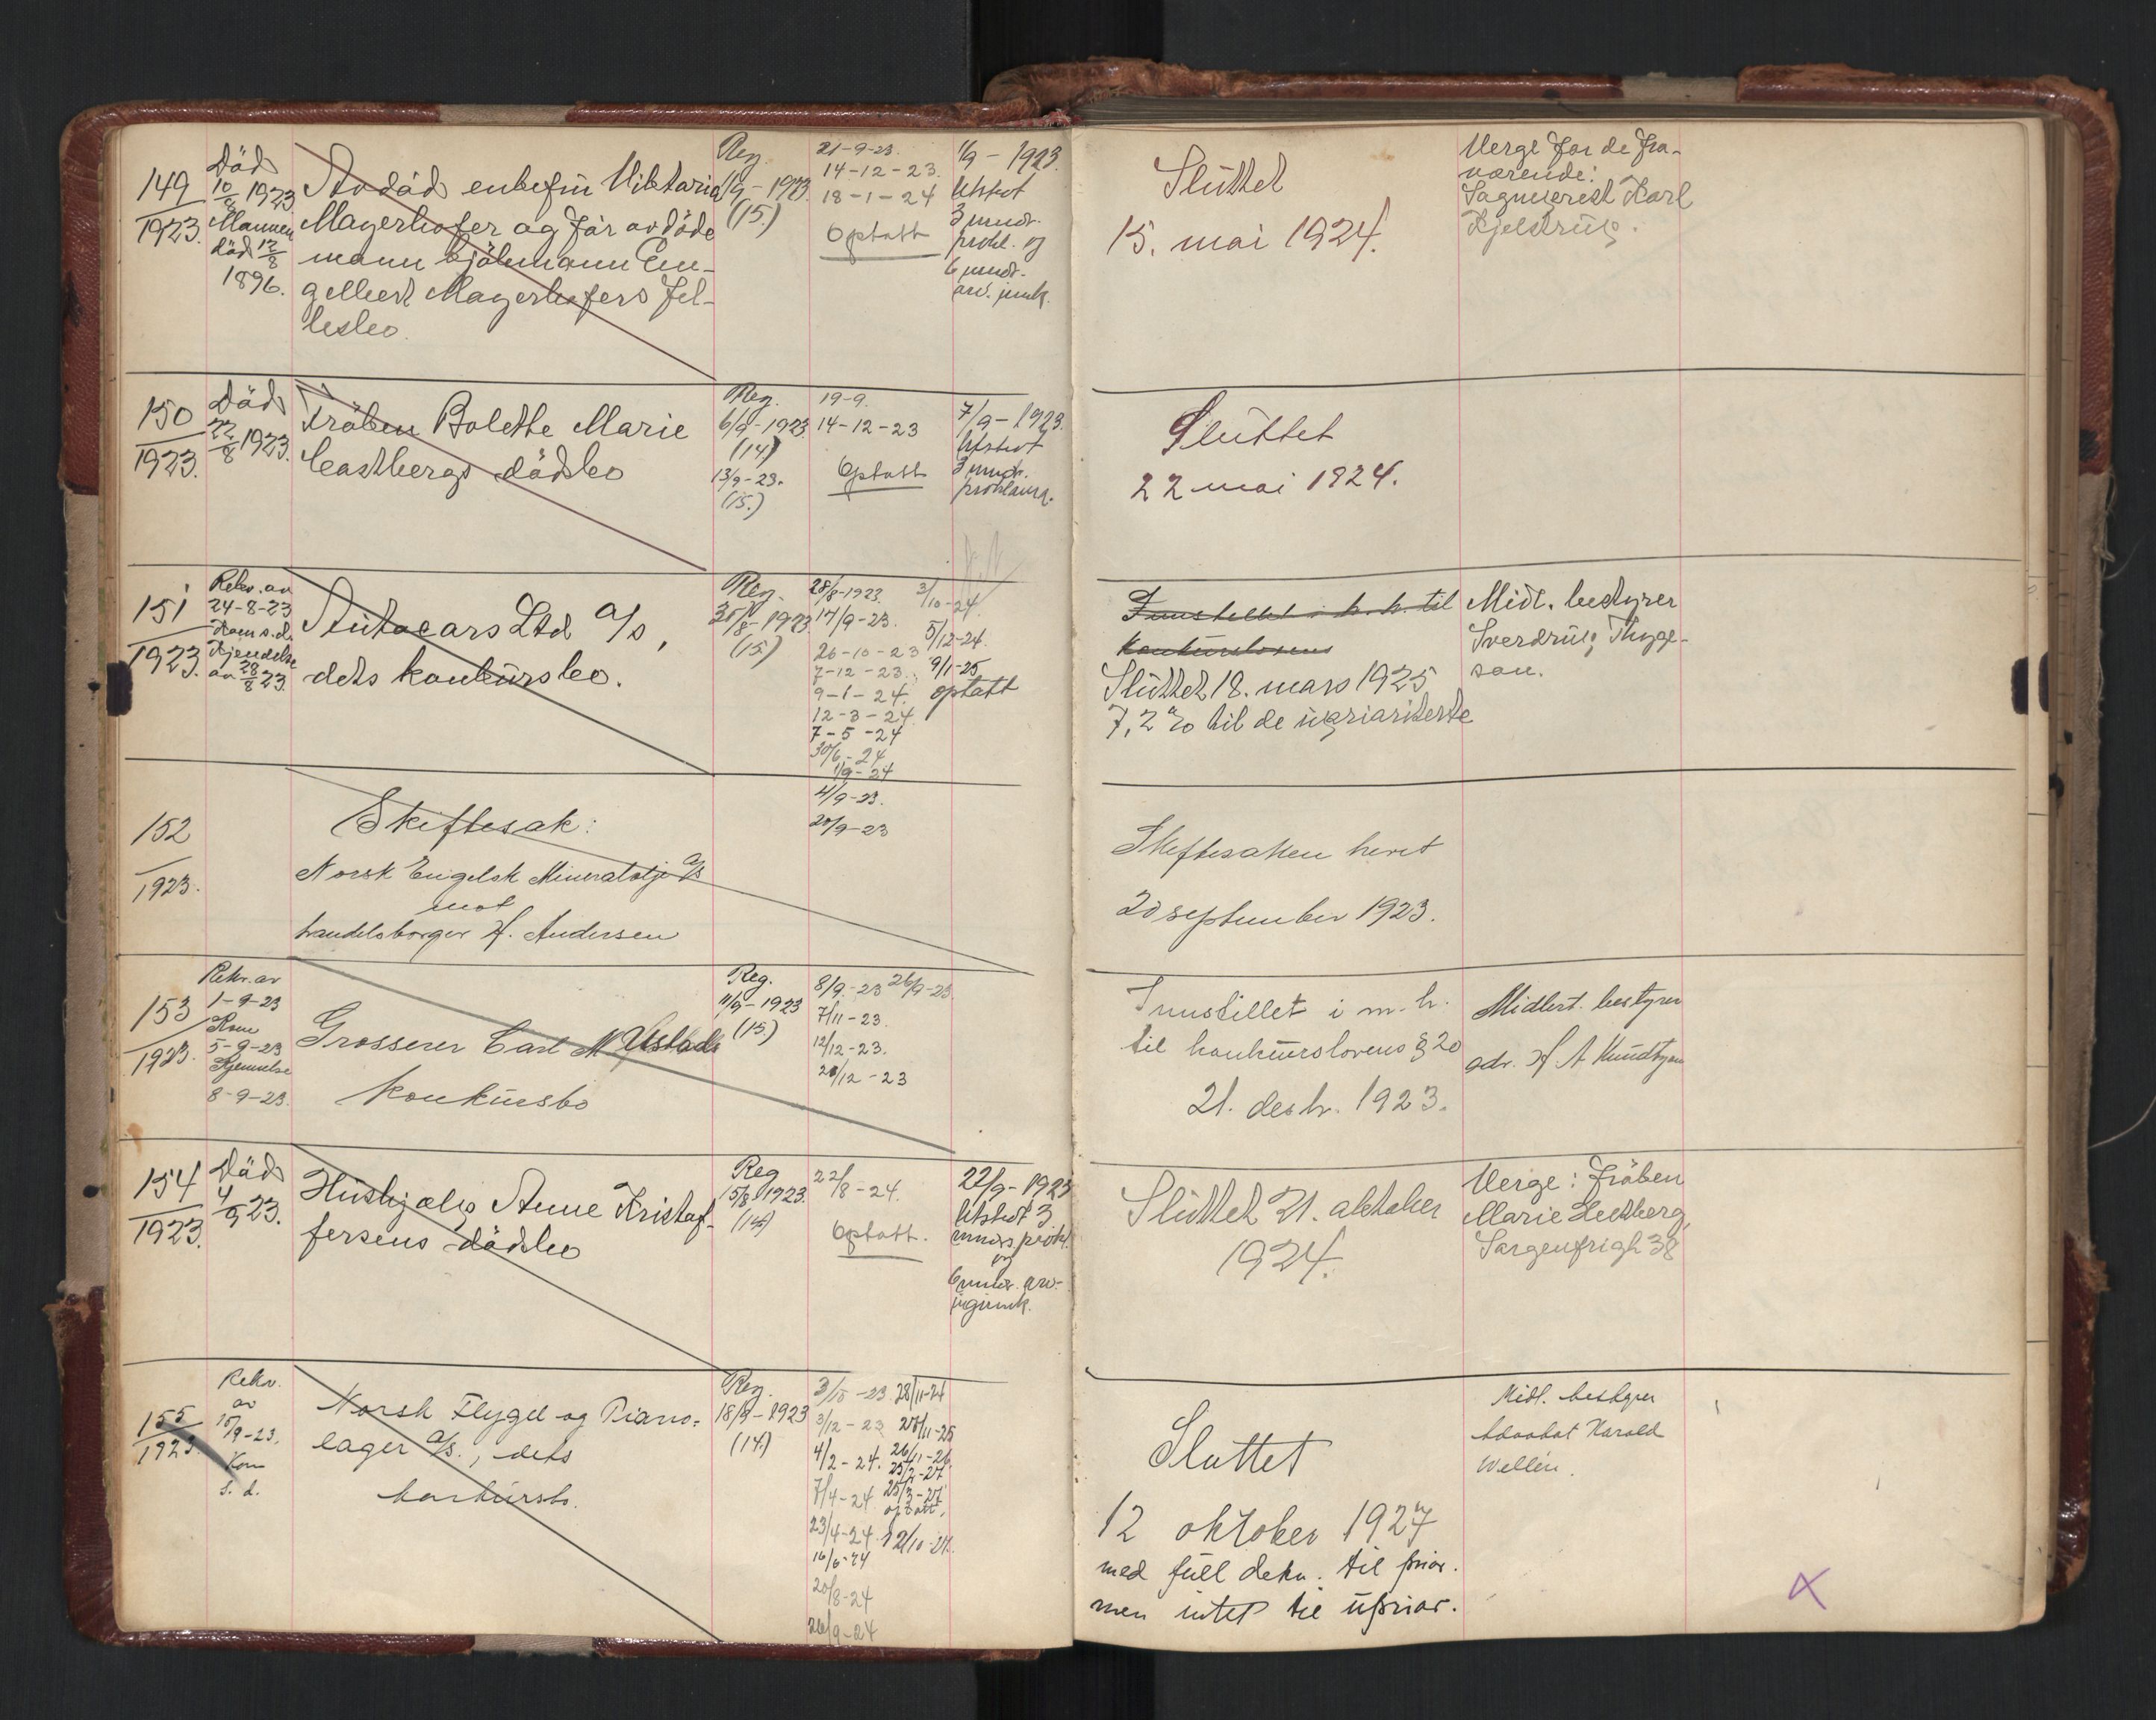 149
1923.
Död
10/8 1923
Mannen
död 12/8
1896.
Avdöd enkefru Viktoria
Mayerhofer og för avdöde
mann
gelbert Mayerhofers fel-
lesbo.
Reg.
1/9-1923.
(15.)
21-9-23.
14-12-23.
18-1-24
Optatt
1/9-1923
Utstedt
3 mndr.
prokl. og
6 mndr.
arv. innk.
Sluttet
15. mai 1924.
Verge for de fra-
værende:
Karl
Kjelstrup.
150
1923.
Död
22/8 1923.
Fröken Bolette Marie
Castbergs dödsbo
Reg.
6/9-1923
(14)
13/9-23.
(15.)
19-9.
14-12-23
Optatt
7/9-1923.
Utstedt
3 mndr.
proklama.
Sluttet
22 mai 1924.
151
1923.
Rekv. av
24-8-23
Kom s.d.
Kjendelse
av 28/8 23.
Autocars Ltd A/s,
dets konkursbo.
Reg.
30/8-1923
(15)
28/8-1923.
17/9-23.
26-10-23
7-12-23.
9-1-24.
12-3-24.
7-5-24
30/6-24
1/9-24
3/10-24.
5/12-24.
9/1-25
optatt
Innstillet i h. h. til
konkurslovens
Sluttet 18. mars 1925
7,2 % til de uprioriterte
Midl. bestyrer
Sverdrup Thyge-
son.
152
1923.
Skiftesak:
Norsk Engelsk Mineralolje A/s
mot
handelsborger H. Andersen
4/9-23.
20/9-23
Skiftesaken hevet
20 september 1923.
153
1923.
Rekv. av
1-9-23
Kom
5-9-23
Kjennelse
8-9-23.
Grosserer Carl M Ustads
konkursbo
Reg.
11/9-1923
(15.)
8/9-23 26/9-23
7/11-23.
12/12-23.
20/12-23
Innstillet i m. h.
til konkurslovens § 20
21. desbr. 1923.
Midlert. bestyrer
adv. H A
154
1923.
Död
4/9 23.
Hushjælp Anne Kristof-
fersens dödsbo
Reg
15/8 1923.
(14)
22/8-24.
Optatt.
22/9-1923
Utstedt 3
mndrs prokl.
og
6 mndr. arv-
inginnk.
Sluttet 21. oktober
1924.
Verge: Fröken
Marie Heltberg,
Sorgenfrigt 38
155
1923.
Rekv.
av
15/9-23.
Kom
s. d.
Norsk Flygel og Piano-
lager A/s., dets
konkursbo.
Reg.
18/9-1923
(14.)
3/10-23 28/11-24
3/12-23 27/11-25
4/2-24. 26/11-26.
25/2-27
7/4-24 25/3-27
optatt.
23/4-24. 12/10-27.
16/6-24
20/8-24
26/9-24
Sluttet
12 oktober 1927
med full dekn. til prior.
men intet til uprior.
Midl. bestyrer
Advokat Harald
Wellén.
x